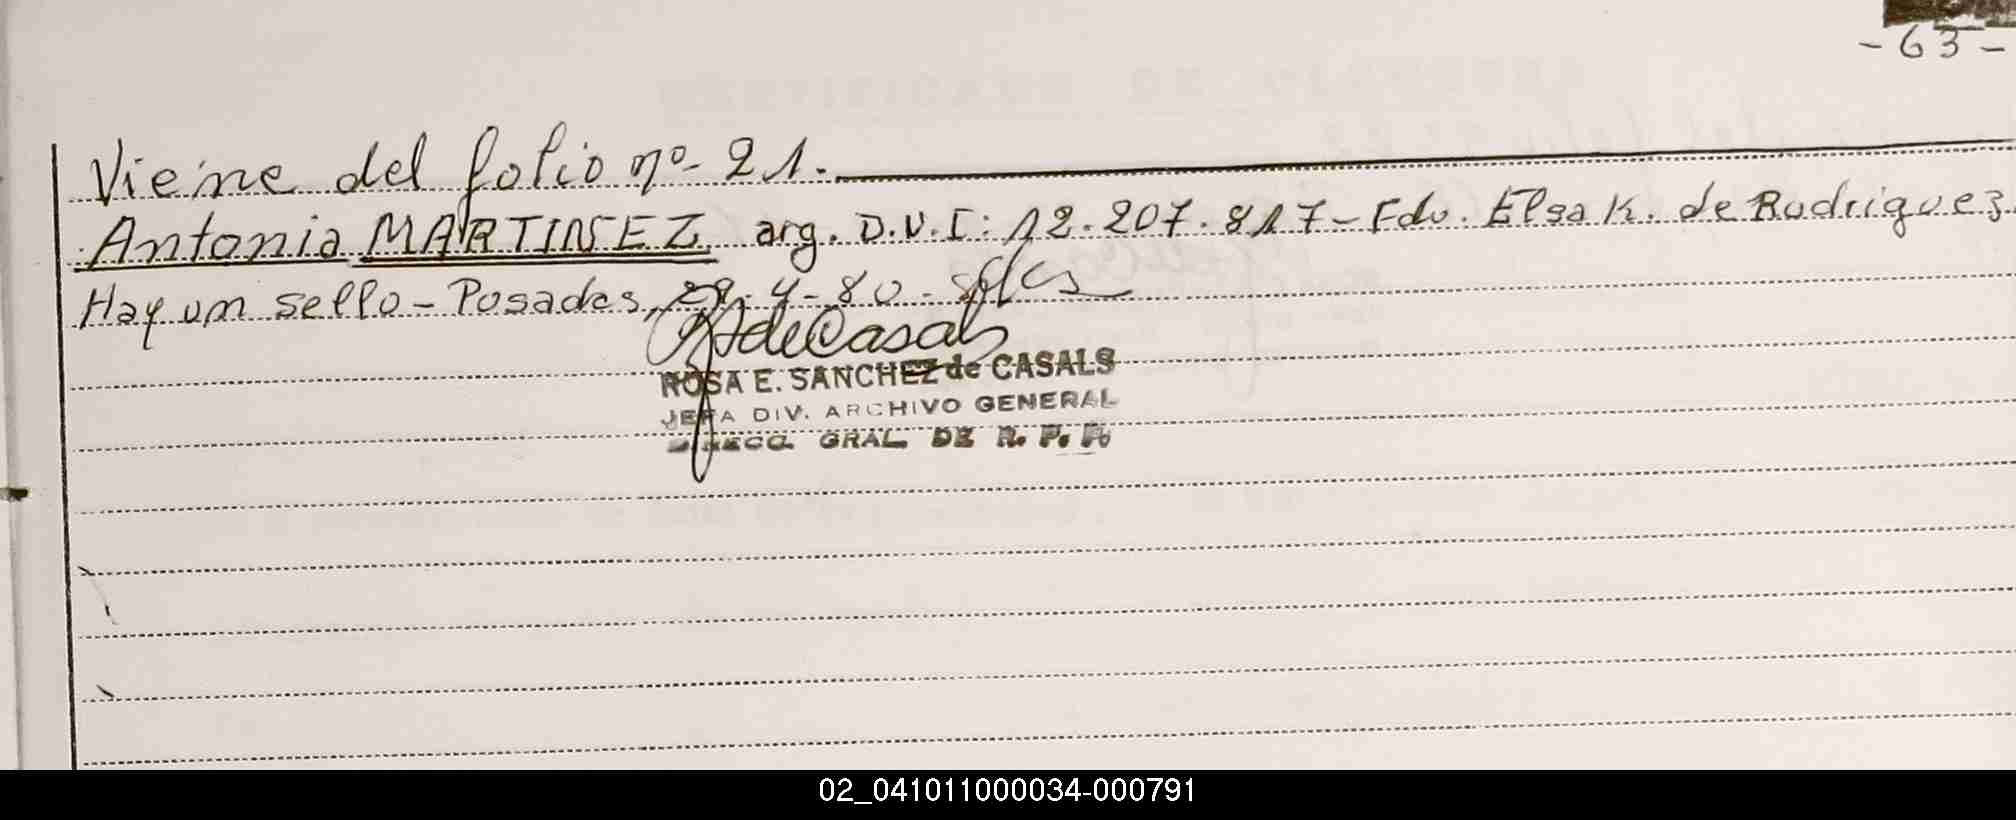 - 63 -
Viene del folio nº- 21.
Antonia MARTINEZ, arg. D.N.I: 12.207.817- Fdo. Elsa K. de Rodriguez.
Hay un sello - Posadas, 4-80.
de Casals
ROSA E. SANCHEZ de CASALS
JEFA DIV. ARCHIVO GENERAL
GRAL. DE R. P. P.
02_041011000034-000791